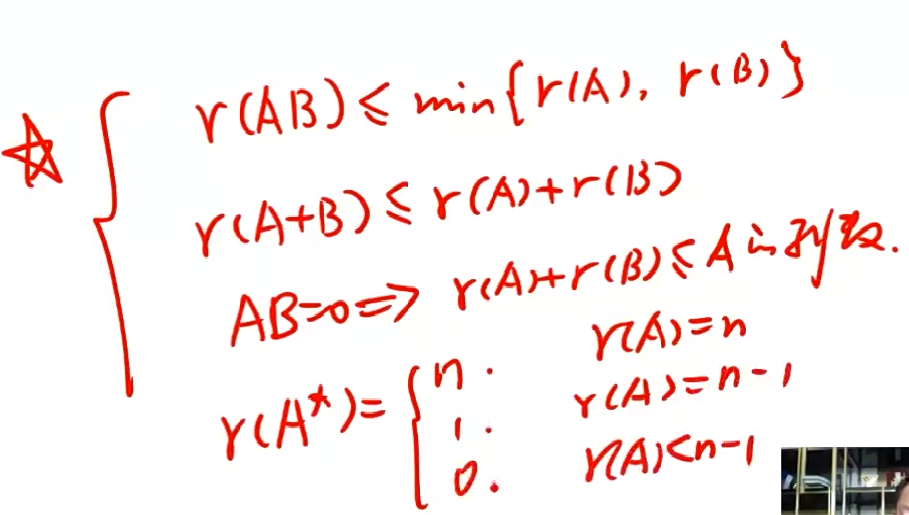 ☆ r(AB) ≤ min{r(A), r(B)}
r(A+B) ≤ r(A)+r(B)
AB=0 ⇒ r(A)+r(B) ≤ A的列数.
r(A*)= { n. r(A)=n
1. r(A)=n-1
0. r(A)<n-1